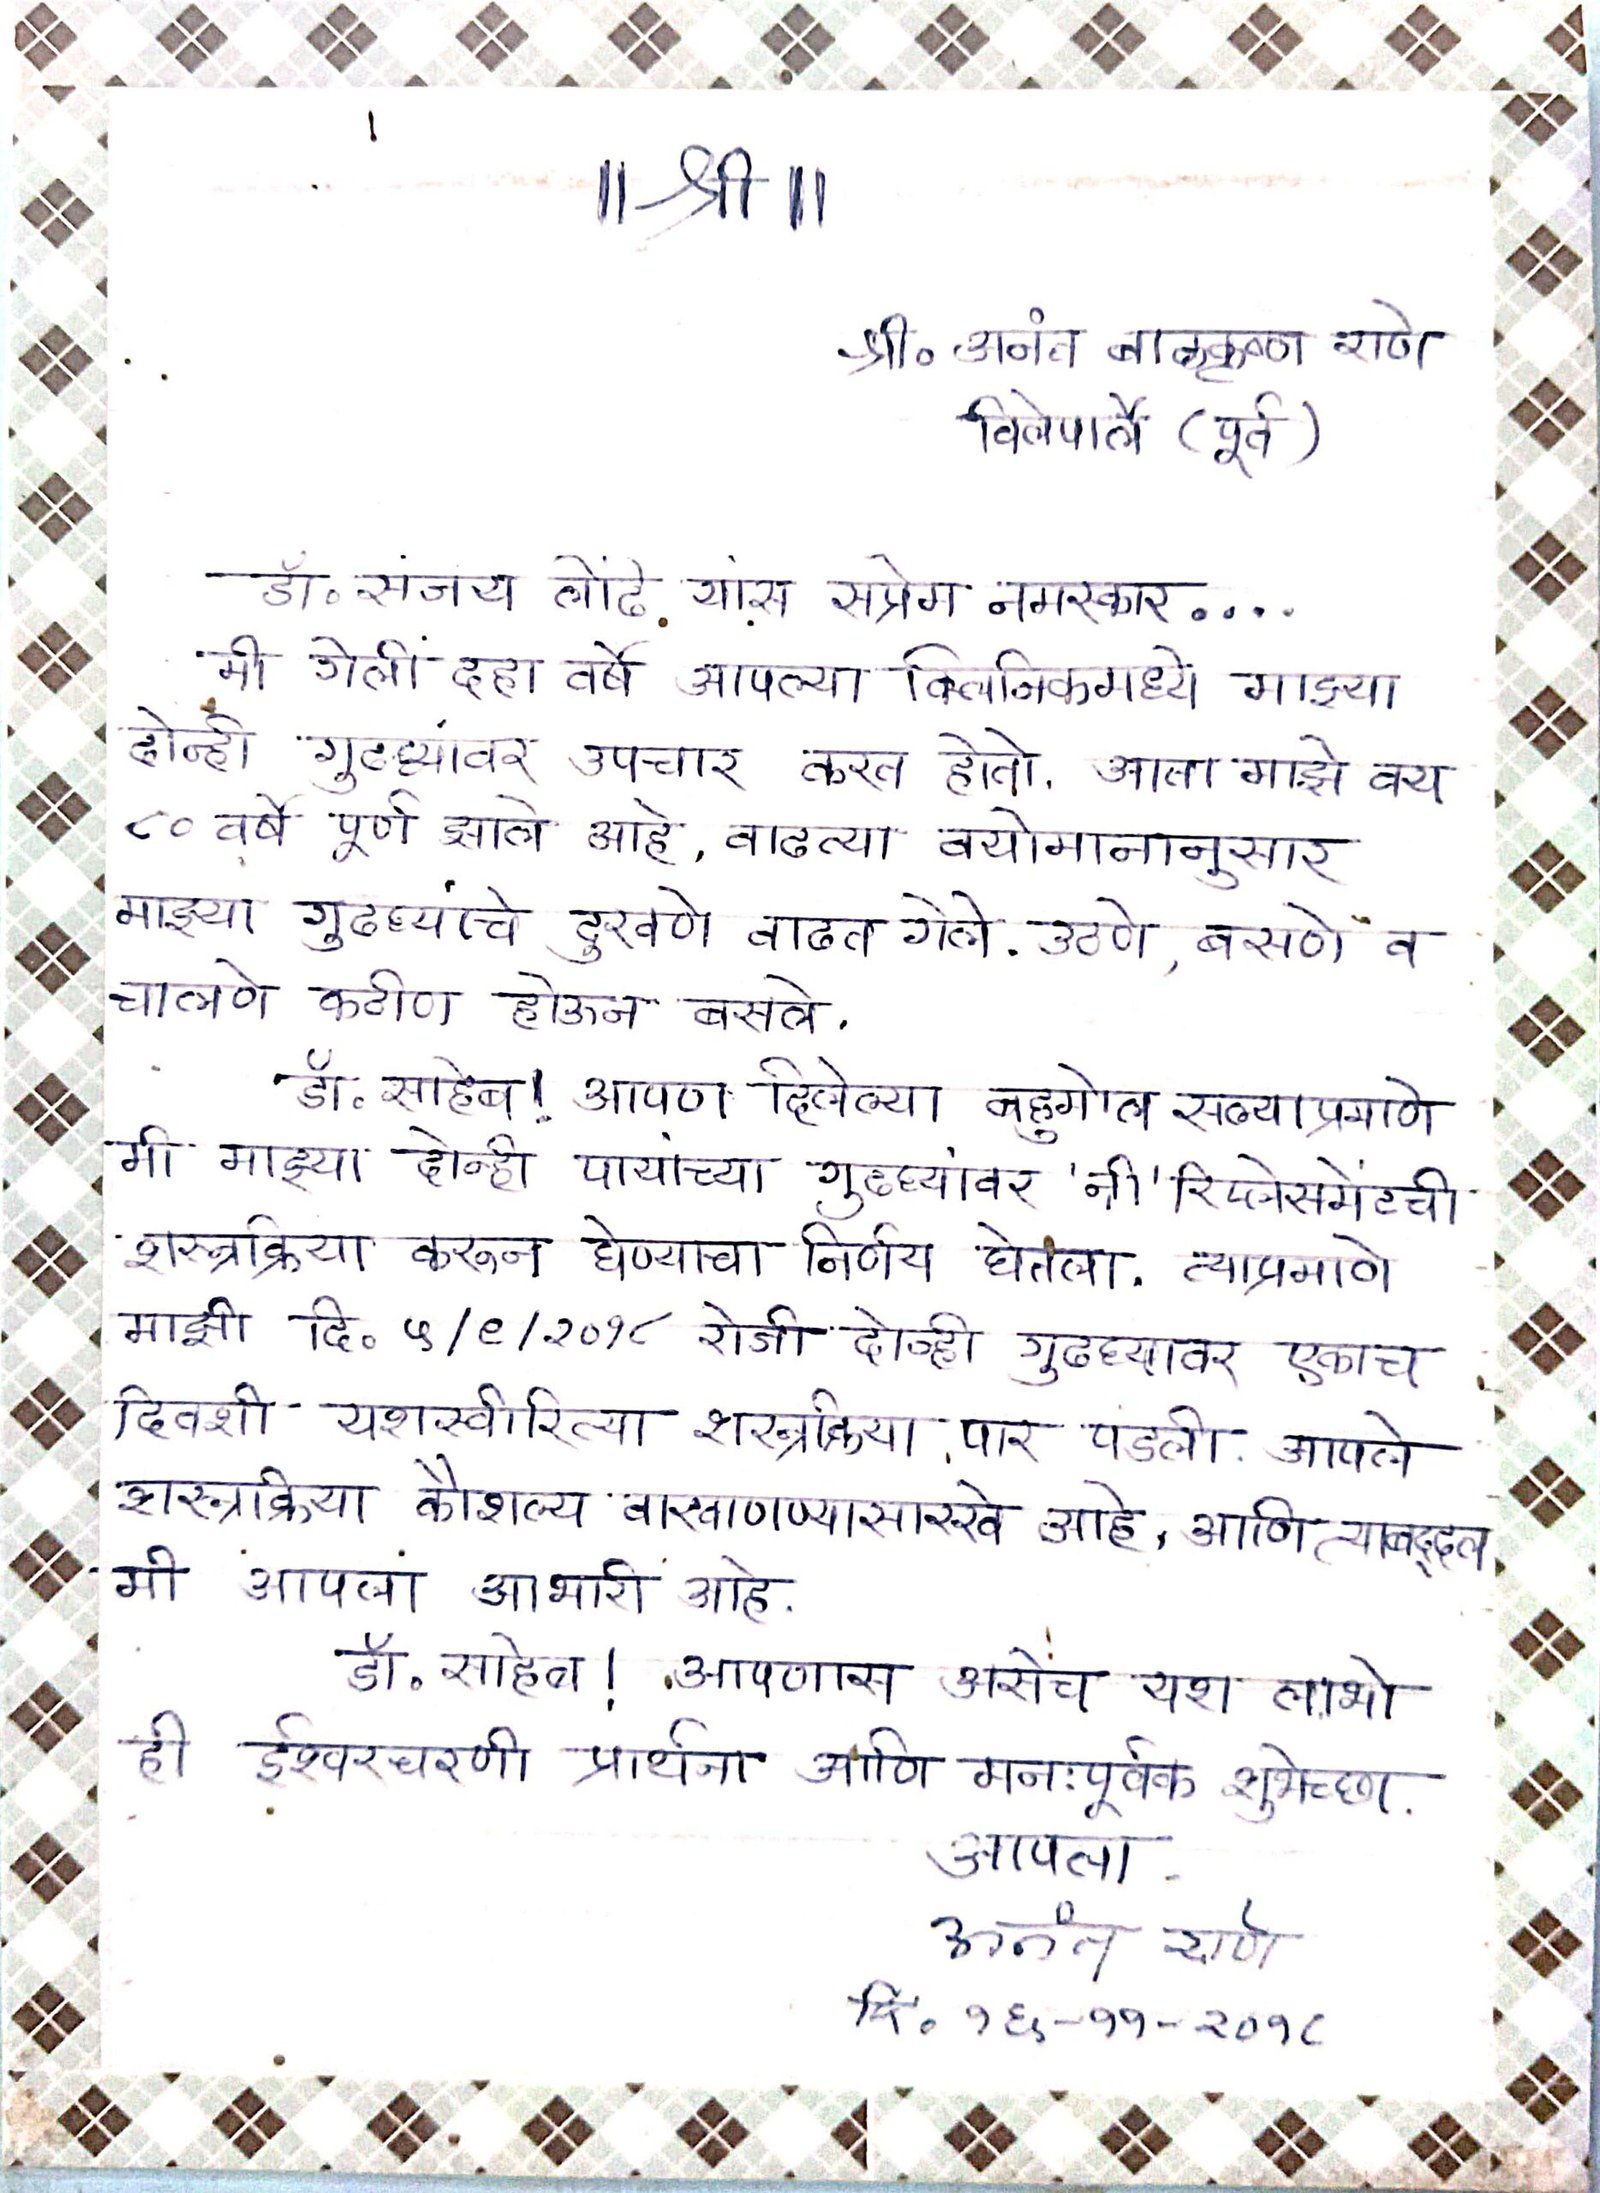 ॥ श्री ॥
श्री. अनंत बाळकृष्ण राणे
विलेपार्ले (पूर्व)
डॉ. संजय लोंढे यांस सप्रेम नमस्कार....
मी गेली दहा वर्षे आपल्या क्लिनिकमध्ये माझ्या
दोन्ही गुढघ्यांवर उपचार करत होतो. आता माझे वय
८० वर्षे पूर्ण झाले आहे, वाढत्या वयोमानानुसार
माझ्या गुढघ्यांचे दुखणे वाढत गेले. उठणे, बसणे व
चालणे कठीण होऊन बसले.
डॉ. साहेब! आपण दिलेल्या बहुमोल सल्याप्रमाणे
मी माझ्या दोन्ही पायांच्या गुढघ्यांवर 'नी' रिप्लेसमेंटची
शस्त्रक्रिया करून घेण्याचा निर्णय घेतला. त्याप्रमाणे
माझी दि. ५/९/२०१८ रोजी दोन्ही गुढघ्यावर एकाच
दिवशी यशस्वीरित्या शस्त्रक्रिया पार पडली. आपले
शस्त्रक्रिया कौशल्य वाखाणण्यासारखे आहे, आणि त्याबद्दल
मी आपला आभारी आहे.
डॉ. साहेब! आपणास असेच यश लाभो
ही ईश्वरचरणी प्रार्थना आणि मनःपूर्वक शुभेच्छा.
आपला
अनंत राणे
दि. १६-११-२०१८